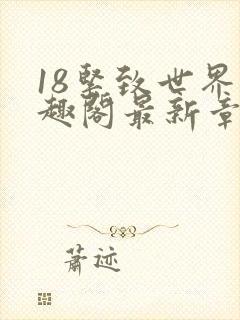 18坚致世界
趣阁最新章
萧迹